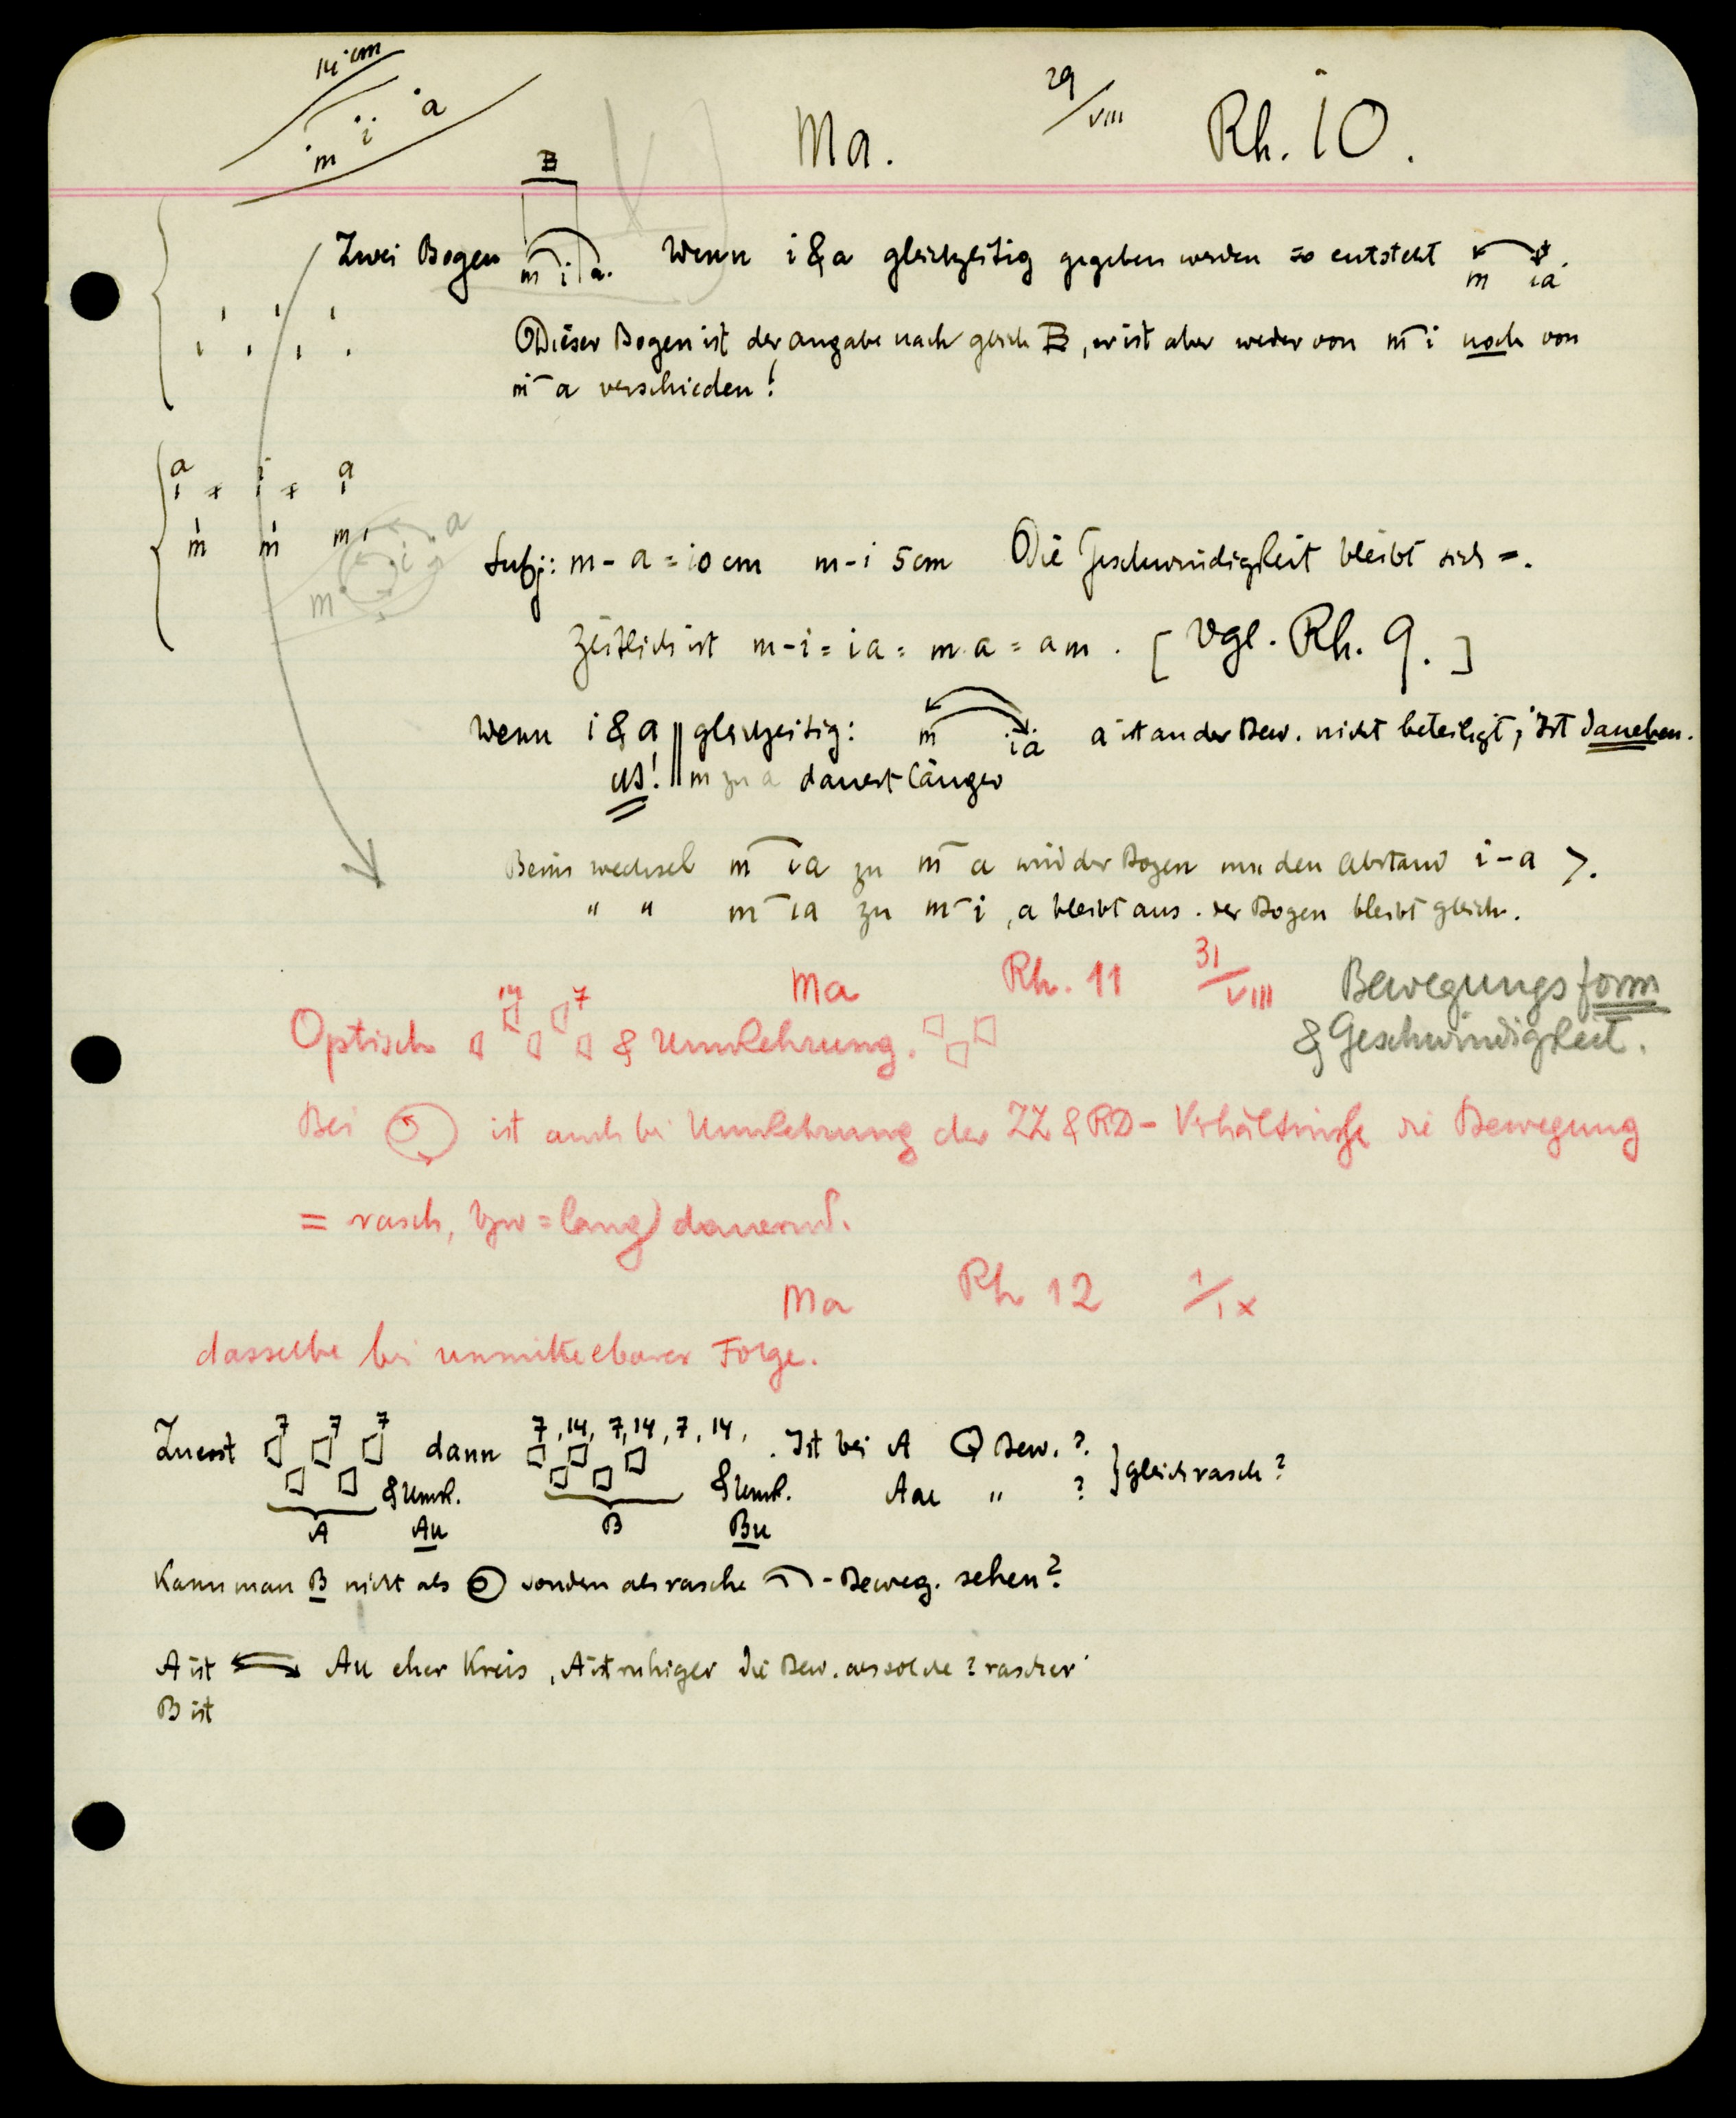 14 cm
m i a
Ma. 29/VIII Rh. 10.
B
Zwei Bogen m i a. Wenn i & a gleichzeitig gegeben werden so entsteht m ia.
Dieser Bogen ist der Angabe nach gleich B, er ist aber weder von m i noch von
m a verschieden!
a i a
m m m
m i a
Subj: m - a = 10 cm m - i 5 cm Die Geschwindigkeit bleibt sich =.
Zeitlich ist m - i = i a = m a = a m. [Vgl. Rh. 9.]
Wenn i & a || gleichzeitig: m ia a ist an der Bew. nicht beteiligt, ist daneben.
us! || m zu a dauert länger
Beim Wechsel m ia zu m a wird der Bogen um den Abstand i - a >.
" " m ia zu m i, a bleibt aus. der Bogen bleibt gleich.
Ma Rh. 11 31/VIII Bewegungsform
& Geschwindigkeit.
Optisch 14 7 & Umkehrung.
Bei ist auch bei Umkehrung der ZZ & RD - Verhältnisse die Bewegung
= rasch, bzw = lang dauernd.
Ma Rh 12 1/IX
dasselbe bei unmittelbarer Folge.
Zuerst 7 7 7 dann 7, 14, 7, 14, 7, 14, . Ist bei A Bew. ?
& Umk. & Umk. Au " ? } gleich rasch?
A Au B Bu
Kann man B nicht als sondern als rasche - Beweg. sehen?
A ist Au eher Kreis, A ist ruhiger die Bew. als solche ? rascher
B ist